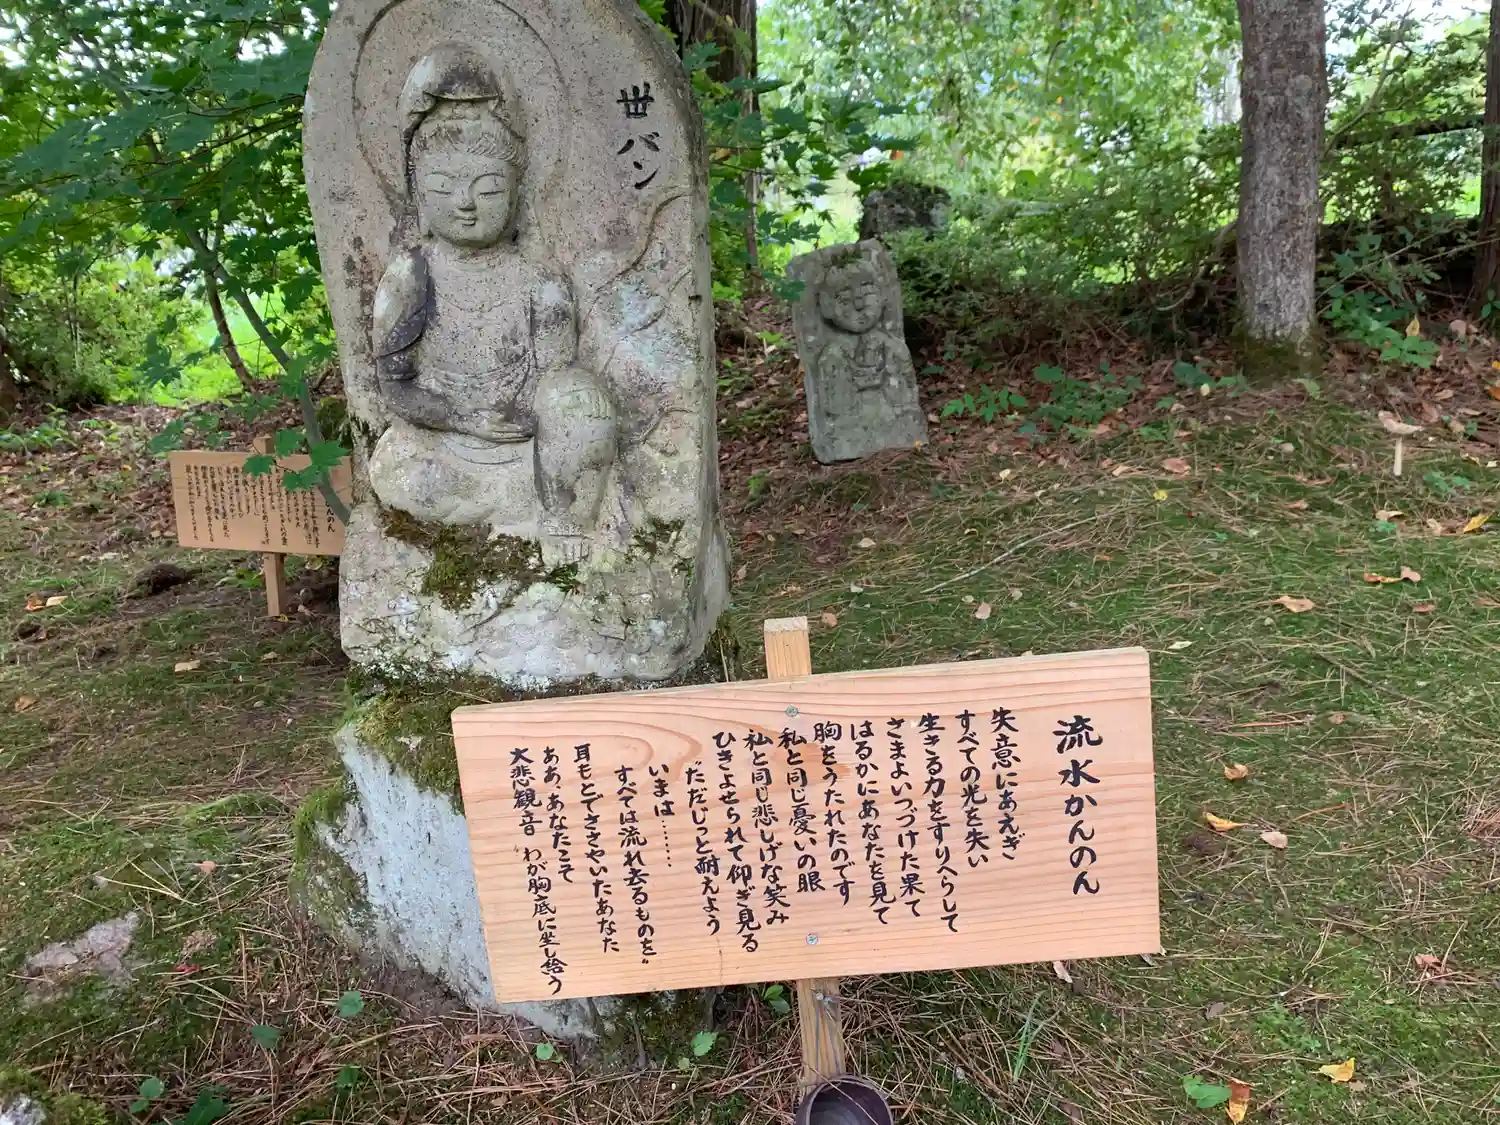 丗バン
流水かんのん
失意にあえぎ
すべての光を失い
生きる力をすりへらして
さまよいつづけた果て
はるかにあなたを見て
胸をうたれたのです
私と同じ憂いの眼
私と同じ悲しげな笑み
ひきよせられて仰ぎ見る
“だだじっと耐えよう
いまは……
すべては流れ去るものを”
耳もとでささやいたあなた
ああ、あなたこそ
大悲観音 わが胸底に坐し給う